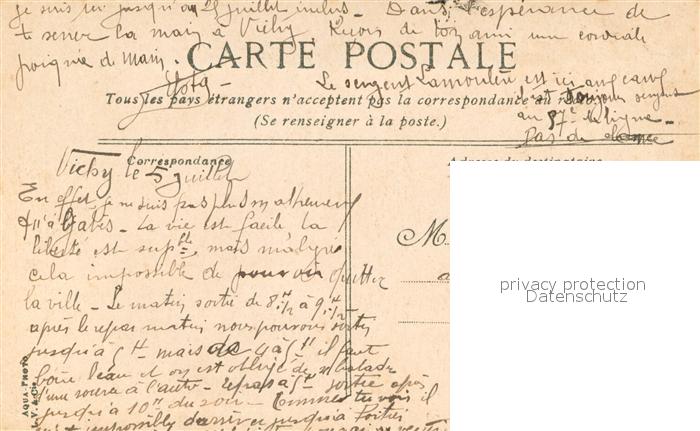 je suis ici jusqu'au 25 juillet inclus - Dans l'espérance de
te serrer la main à Vichy. Reçois de ton ami une cordiale
poignée de main.
CARTE POSTALE
Le sergent Lamoulère est ici au camp
Tous les pays étrangers n'acceptent pas la correspondance au
il est toujours sergent
(Se renseigner à la poste.)
au 57e de ligne -
Pas de chance
Correspondance
Vichy le 5 juillet
En effet, je ne suis pas plus malheureux
qu'à Gabès - La vie est facile, la
liberté est suffble mais malgré
cela impossible de pouvoir quitter
la ville - Le matin sortie de 8h1/2 à 9h1/2
après le repas matin nous pouvons sortir
jusqu'à 5h mais de 4 à 5h il faut
boire l'eau et on est obligé de se balader
d'une source à l'autre - repas à 5h sortie après
jusqu'à 10h du soir - Comme tu vois il
est impossible d'arriver jusqu'à Poitiers
M
privacy protection
Datenschutz
AQUA-PHOTO
L.V. & Cie